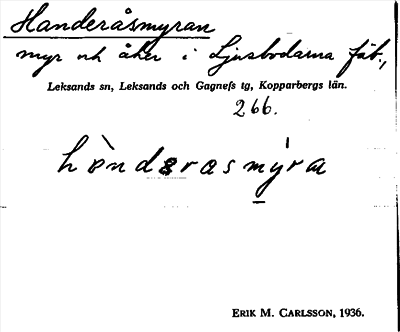 Handeråsmyran
myr och åker i Ljusbodarna fäb.,
Leksands sn, Leksands och Gagnefs tg, Kopparbergs län.
266.
hònderasmýra
ERIK M. CARLSSON, 1936.